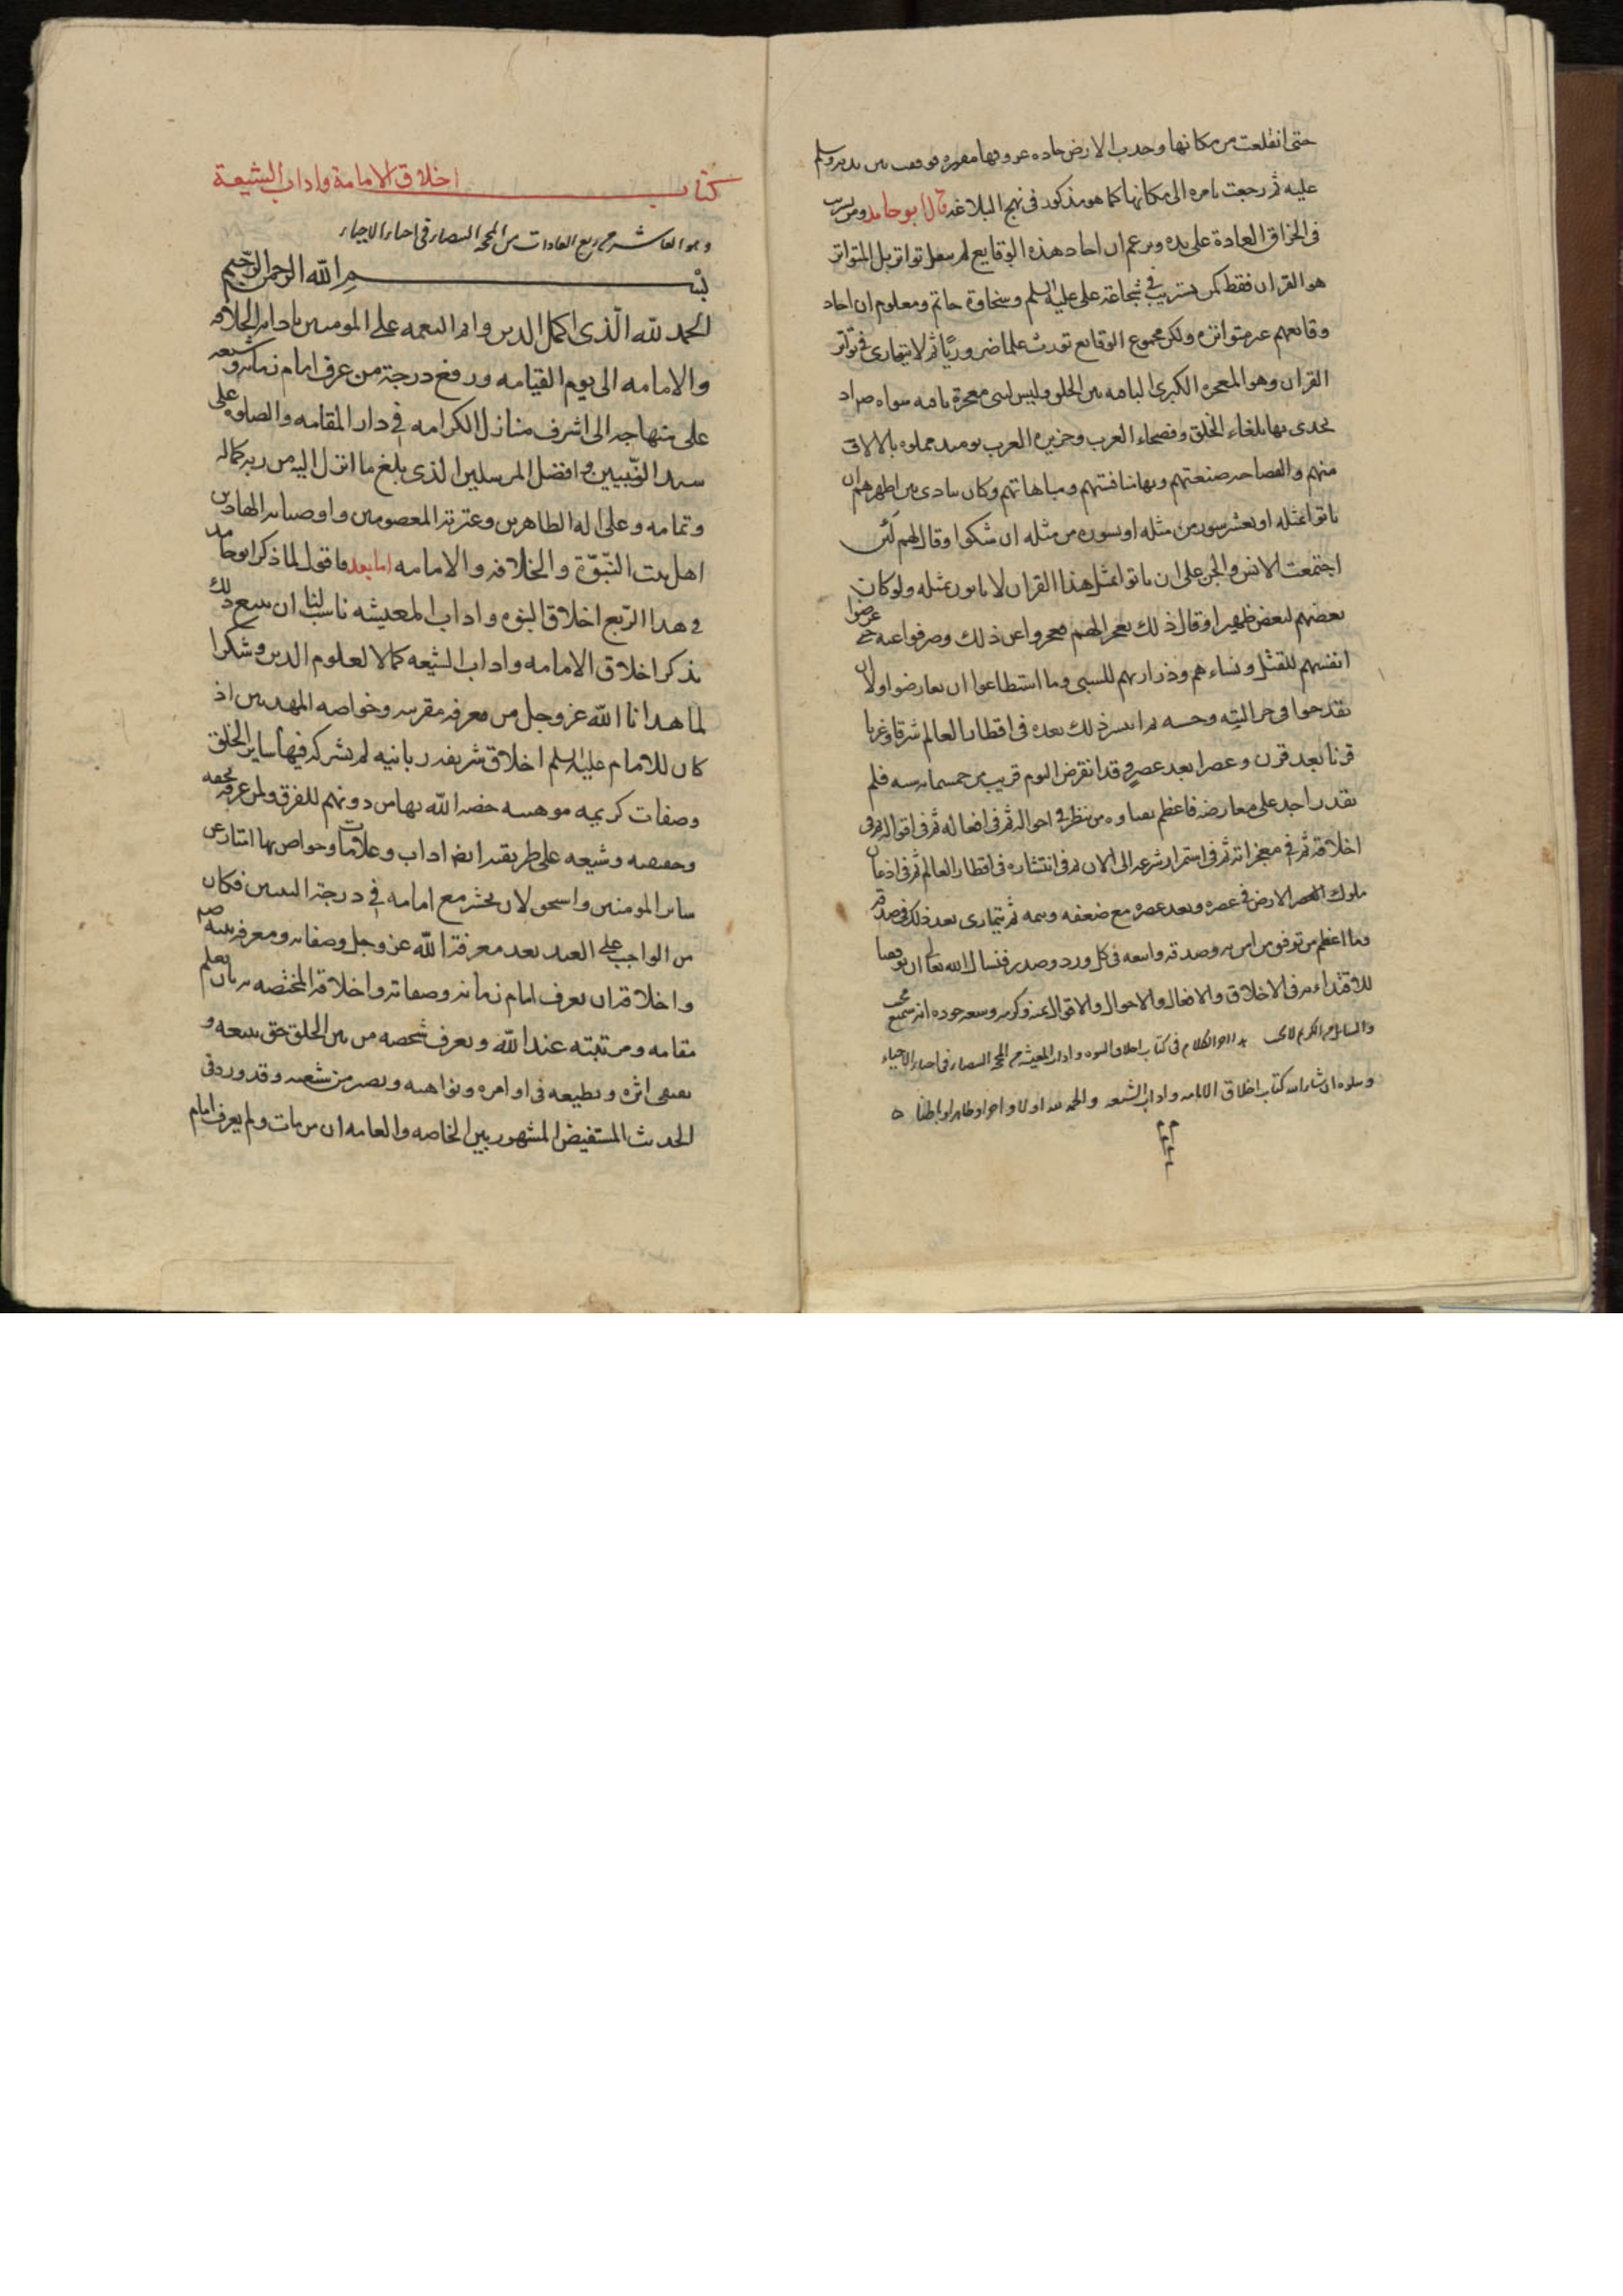 حتى انقلعت من مكانها وخدت الارض جاره عروقها مغبره فوقفت بين يديه وسلم
عليه ثم رجعت بامره الى مكانها كما هو مذكور فى نهج البلاغه قال ابو حامد ومن يستريب
فى انخراق العادة على يده ويزعم ان احاد هذه الوقايع لم ينقل تواتر بل المتواتر
هو القران فقط كمن يستريب في شجاعة على عليه السلم وسخاوة حاتم ومعلوم ان احاد
وقائعهم غير متواتره ولكن مجموع الوقايع تورث علما ضروريًا ثم لا يتمارى في تواتر
القران وهو المعجزه الكبرى الباقيه بين الخلق وليس لنبى معجزة باقيه سواه صـ اذ
تحدى بها بلغاء الخلق وفصحاء العرب وجزيره العرب يومئذ مملوه بالالاف
منهم والفصاحه صنعتهم وبها منافستهم ومباهاتهم وكان ينادى بين اظهرهم ان
ياتوا بمثله او بعشر سور من مثله او بسوره من مثله ان شكوا وقال لهم لئن
اجتمعت الانس والجن على ان ياتوا بمثل هذا القران لا ياتون بمثله ولو كان
بعضهم لبعض ظهيرا وقال ذلك تعجيزا لهم فعجزوا عن ذلك وصرفوا عنه حتى عرضوا
انفسهم للقتل ونساءهم وذراريهم للسبى وما استطاعوا ان يعارضوا ولا ان
يقدحوا فى جزالته وحسنه ثم انتشر ذلك بعده فى اقطار العالم شرقا وغربا
قرنا بعد قرن وعصرا بعد عصر وقد انقرض اليوم قريب من خمسمايه سنه فلم
يقدر احد على معارضته فاعظم بغباوه من ينظر في احواله ثم فى افعاله ثم فى اقواله ثم فى
اخلاقه ثم في معجزاته ثم فى استمرار شرعه الى الان ثم فى انتشاره فى اقطار العالم ثم فى اذعان
ملوك الارض فى عصره وبعد عصره مع ضعفه ويتمه ثم يتمارى بعد ذلك فى صدقه
وما اعظم توفيق من امن به وصدقه واتبعه فى كل ورد وصدر فنسال الله تعالى ان يوفقنا
للاقتداء به فى الاخلاق والافعال والاحوال والاقوال بمنه وكرمه وسعه جوده انه سميع مجيب
اخر الكلام فى كتاب اخلاق النبوه واداب المعيشه من المحجه البيضاء فى احياء الاحياء
ويتلوه ان شاء الله كتاب اخلاق الامامه واداب الشيعه والحمد لله اولا واخرا وظاهرا وباطنا
كتاب اخلاق الامامة واداب الشيعة
وهو العاشر من ربع العادات من المحجه البيضاء فى احياء الاحياء
بسم الله الرحمن الرحيم
الحمد لله الذى اكمل الدين واتم النعمه على المومنين بادامه الخلافه
والامامه الى يوم القيامه ورفع درجة من عرف امام زمانه وشيعه
على منهاجه الى اشرف منازل الكرامه في دار المقامه والصلوه على
سيد النبيين وافضل المرسلين الذى بلغ ما انزل اليه من ربه كماله
وتمامه وعلى اله الطاهرين وعترته المعصومين واوصيائه الهادين
اهل بيت النبوّة والخلافه والامامه اما بعد فاقول لما ذكر ابو حامد
فى هذا الربع اخلاق النبوه واداب المعيشه ناسب لنا ان نتبع ذلك
بذكر اخلاق الامامه واداب الشيعه كمالا لعلوم الدين وشكرا
لما هدانا الله عز وجل من معرفه مقربيه وخواصه المهديين اذ
كان للامام عليه السلم اخلاق شريفه ربانيه لم يشركه فيها ساير الخلق
وصفات كريمه موهبيه خصه الله بها من دونهم للفرق ولمن عرفه بحقه
وحقيقته وشيعه على طريقته ايضا اداب وعلامات وخواص بها امتاز عن
ساير المومنين واستحق لان يحشر مع امامه في درجة النبيين فكان
من الواجب على العبد بعد معرفة الله عز وجل وصفاته ومعرفه نبيه صـ
واخلاقه ان يعرف امام زمانه وصفاته واخلاقه المختصه به بان يعلم
مقامه ومرتبته عند الله ويعرف شخصه من بين الخلق حتى يتبعه و
يقتفى اثره ويطيعه فى اوامره ونواهيه ويصير من شيعته وقد ورد فى
الحديث المستفيض المشهور بين الخاصه والعامه ان من مات ولم يعرف امام